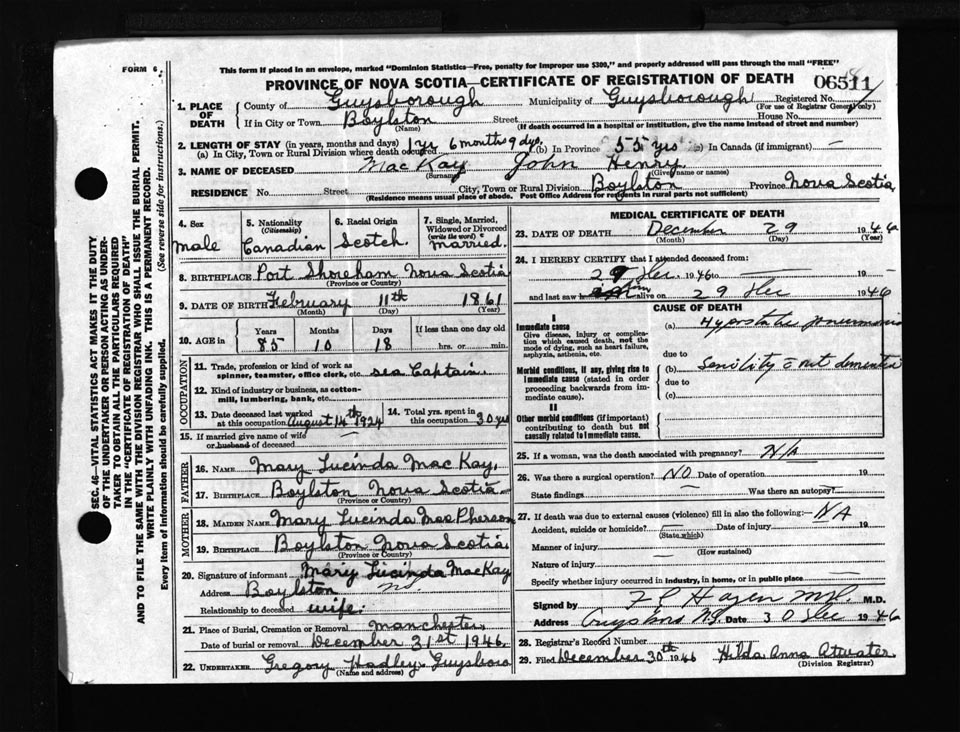 FORM 6
This form if placed in an envelope, marked "Dominion Statistics—Free, penalty for improper use $300," and properly addressed will pass through the mail "FREE"
PROVINCE OF NOVA SCOTIA—CERTIFICATE OF REGISTRATION OF DEATH
06511
1. PLACE OF DEATH County of Guysborough Municipality of Guysborough Registered No. (For use of Registrar General only)
If in City or Town Boylston (Name) Street House No.
(If death occurred in a hospital or institution, give the name instead of street and number)
2. LENGTH OF STAY (in years, months and days)
(a) In City, Town or Rural Division where death occurred 1 yr 6 months 9 dys. (b) In Province 55 yrs (c) In Canada (if immigrant) —
3. NAME OF DECEASED MacKay John Henry
(Surname) (Given name or names)
RESIDENCE No. Street City, Town or Rural Division Boylston Province Nova Scotia
(Residence means usual place of abode. Post Office Address for residents in rural parts not sufficient)
4. Sex male
5. Nationality (Citizenship) Canadian
6. Racial Origin Scotch.
7. Single, Married, Widowed or Divorced (write the word) married.
8. BIRTHPLACE Port Shoreham Nova Scotia
(Province or Country)
9. DATE OF BIRTH February 11th 1861
(Month) (Day) (Year)
10. AGE in Years 85 Months 10 Days 18 If less than one day old hrs. or min.
OCCUPATION
11. Trade, profession or kind of work as spinner, teamster, office clerk, etc. sea Captain.
12. Kind of industry or business, as cotton-mill, lumbering, bank, etc.
13. Date deceased last worked at this occupation August 14th 1924
14. Total yrs. spent in this occupation 30 yrs
15. If married give name of wife or husband of deceased —
FATHER
16. NAME Mary Lucinda MacKay.
17. BIRTHPLACE Boylston Nova Scotia.
(Province or Country)
MOTHER
18. MAIDEN NAME Mary Lucinda MacPherson
19. BIRTHPLACE Boylston Nova Scotia
(Province or Country)
20. Signature of informant Mary Lucinda MacKay
Address Boylston
Relationship to deceased wife.
21. Place of Burial, Cremation or Removal Manchester
Date of burial or removal December 31st 1946.
22. UNDERTAKER Gregory Hadley Guysboro
(Name and address)
MEDICAL CERTIFICATE OF DEATH
23. DATE OF DEATH December 29 1946
(Month) (Day) (Year)
24. I HEREBY CERTIFY that I attended deceased from:
29 Dec. 1946 to — 19 —
and last saw h alive on 29 Dec 1946
CAUSE OF DEATH
I
Immediate cause
Give disease, injury or complication which caused death, not the mode of dying, such as heart failure, asphyxia, asthenia, etc.
(a) Hypostatic pneumonia
due to
Morbid conditions, if any, giving rise to immediate cause (stated in order proceeding backwards from immediate cause).
(b) Senility c out dementia
due to
(c)
II
Other morbid conditions (if important) contributing to death but not causally related to immediate cause.
25. If a woman, was the death associated with pregnancy? N/A
26. Was there a surgical operation? NO Date of operation 19
State findings Was there an autopsy? —
27. If death was due to external causes (violence) fill in also the following:— NA
Accident, suicide or homicide? — Date of injury 19
(State which)
Manner of injury —
(How sustained)
Nature of injury
Specify whether injury occurred in industry, in home, or in public place —
Signed by M.D.
Address Guysboro N.S. Date 30 Dec 1946
28. Registrar's Record Number
29. Filed December 30th 1946 Hilda Anna Attwater
(Division Registrar)
SEC. 46—VITAL STATISTICS ACT MAKES IT THE DUTY
OF THE UNDERTAKER OR PERSON ACTING AS UNDER-
TAKER TO OBTAIN ALL THE PARTICULARS REQUIRED
IN THE "CERTIFICATE OF REGISTRATION OF DEATH"
AND TO FILE THE SAME WITH THE DIVISION REGISTRAR WHO SHALL ISSUE THE BURIAL PERMIT.
WRITE PLAINLY WITH UNFADING INK. THIS IS A PERMANENT RECORD.
Every item of information should be carefully supplied. (See reverse side for instructions.)